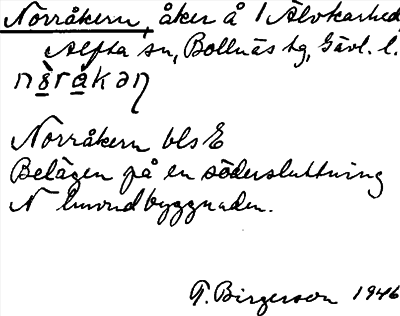 Norråkern, åker å 1 Älvkarhed,
Alfta sn, Bollnäs tg, Gävl. l.
nòråkəɳ
Norråkern bls E
Belägen på en södersluttning
N huvudbyggnaden.
T. Birgerson 1946